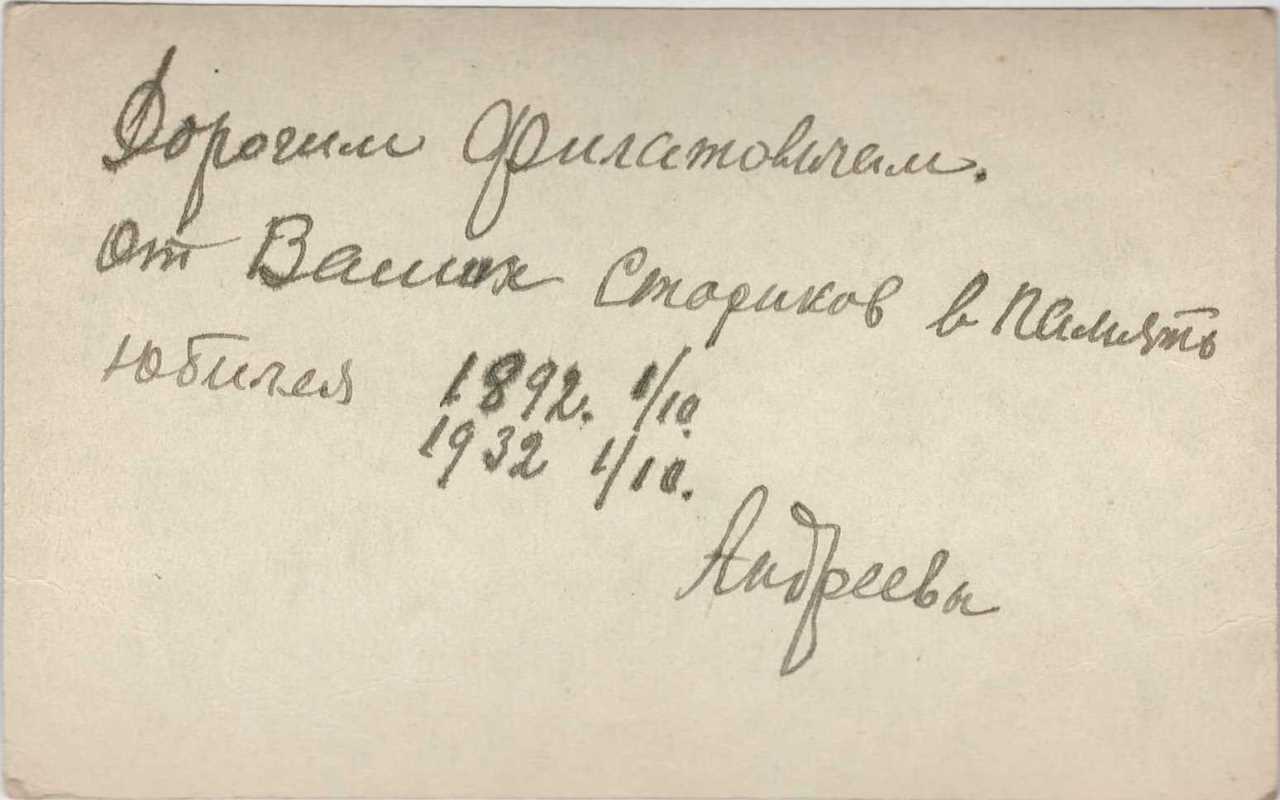 Дорогим Филатовичам.
От Ваших Стариков в Память
юбилея 1892. 1/10.
1932 1/10.
Андреевы